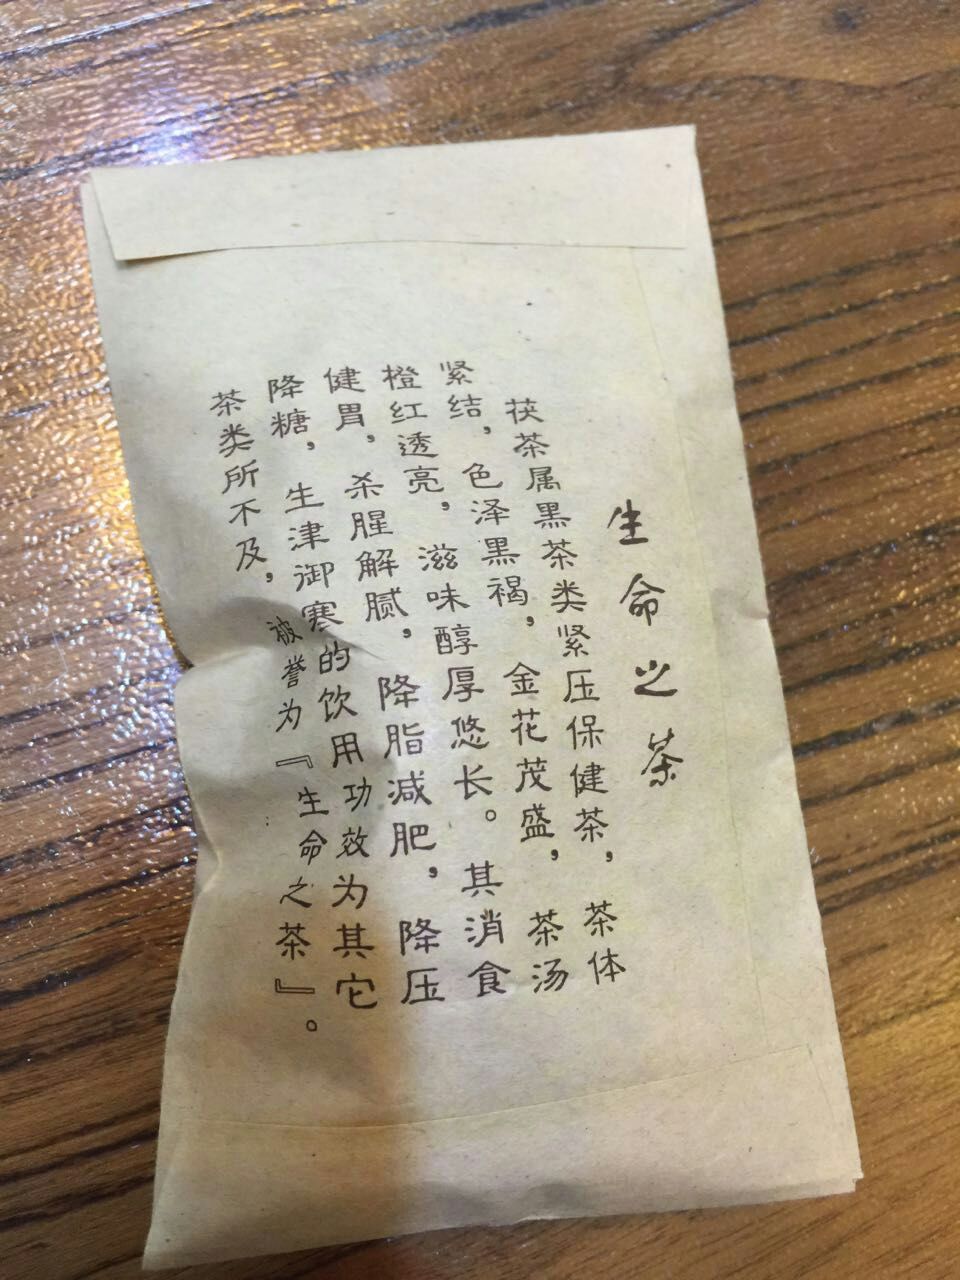 生命之茶
茯茶属黑茶类紧压保健茶，茶体
紧结，色泽黑褐，金花茂盛，茶汤
橙红透亮，滋味醇厚悠长。其消食
健胃，杀腥解腻，降脂减肥，降压
降糖，生津御寒的饮用功效为其它
茶类所不及，被誉为『生命之茶』。